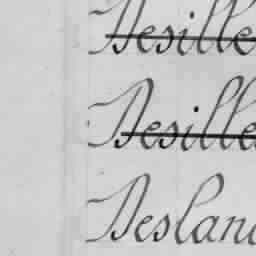 Desille
Desille
Desland